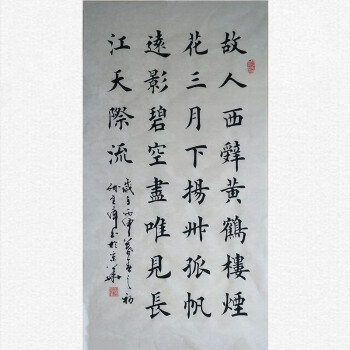 故人西辤黃鶴樓煙
花三月下揚州孤帆
遠影碧空盡唯見長
江天際流
歲在丙申
書於京華